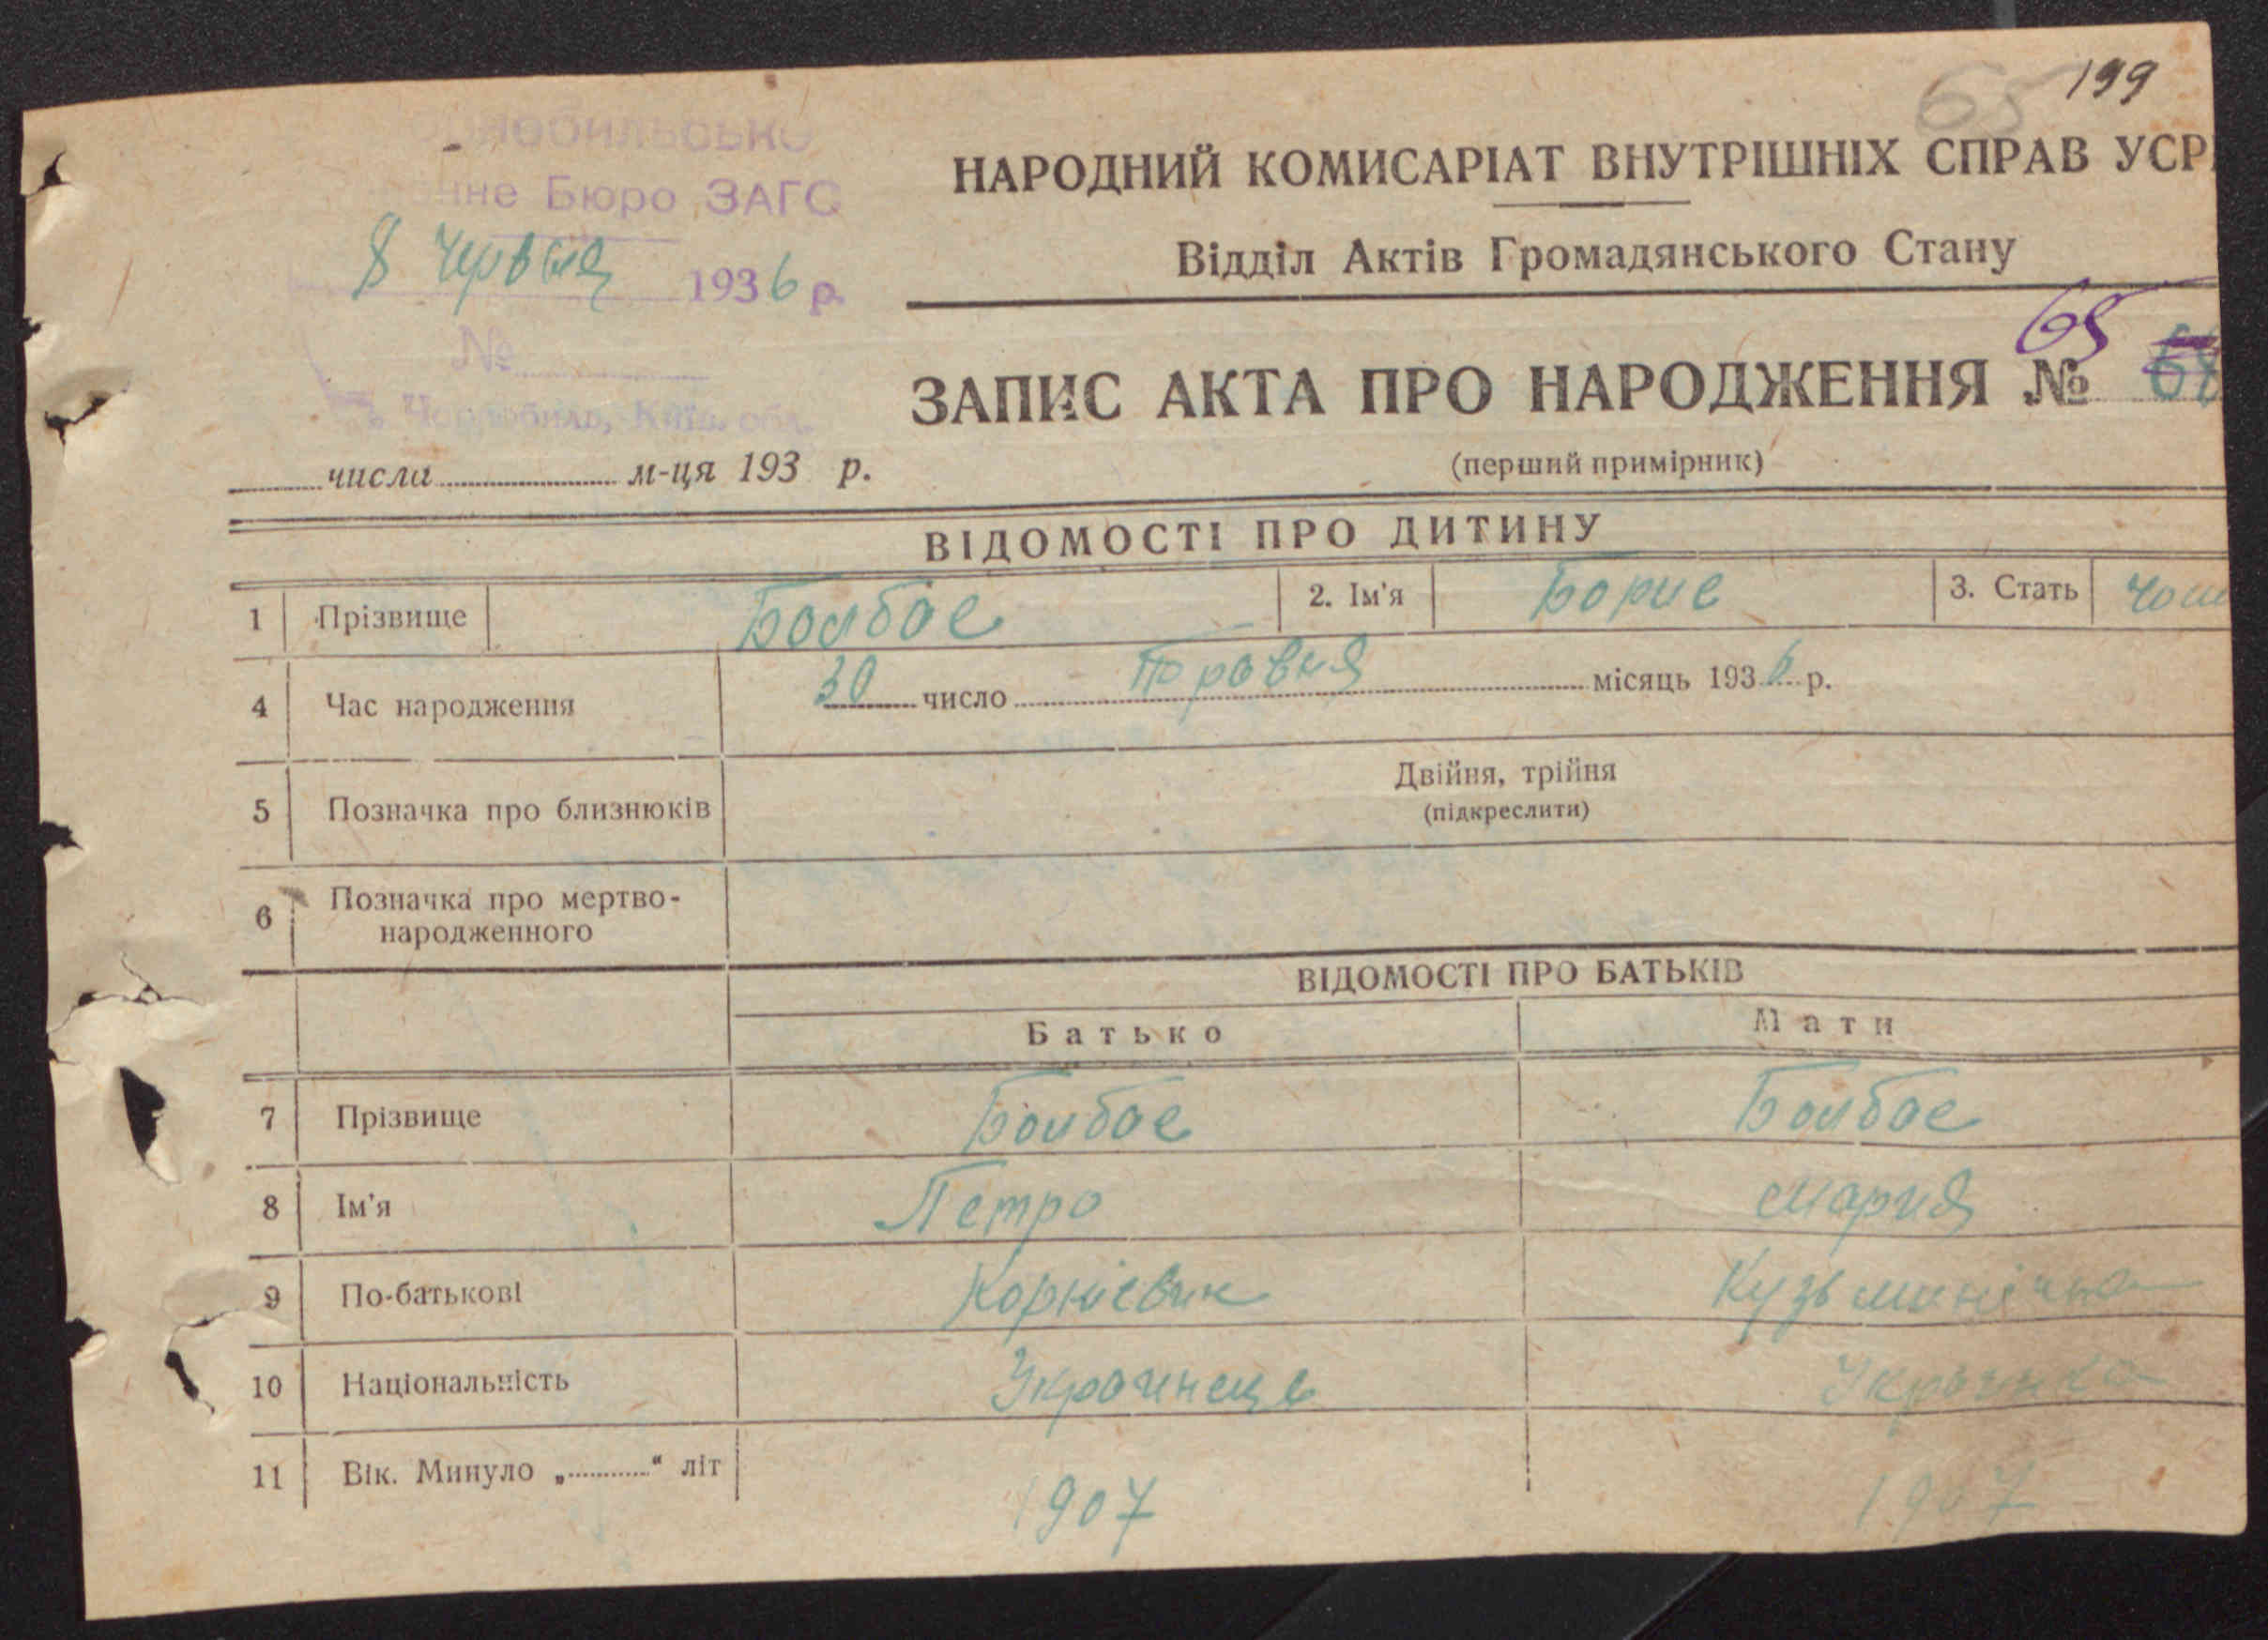 199
65
НАРОДНИЙ КОМИСАРІАТ ВНУТРІШНІХ СПРАВ УСР
Відділ Актів Громадянського Стану
Бюро ЗАГС
8 Червня 1936 р.
№
Чорнобиль, Київ. обл.
65
ЗАПИС АКТА ПРО НАРОДЖЕННЯ № 68
(перший примірник)
числа м-ця 193 р.
ВІДОМОСТІ ПРО ДИТИНУ
1 Прізвище Болбас 2. Ім'я Борис 3. Стать Чол
4 Час народження 30 число Травня місяць 1936 р.
5 Позначка про близнюків Двійня, трійня
(підкреслити)
6 Позначка про мертво-
народженного
ВІДОМОСТІ ПРО БАТЬКІВ
Батько Мати
7 Прізвище Болбас Болбас
8 Ім'я Петро Мария
9 По-батькові Корнієвич Кузьминічна
10 Національність Украинець Украинка
11 Вік. Минуло „............“ літ 1907 1907